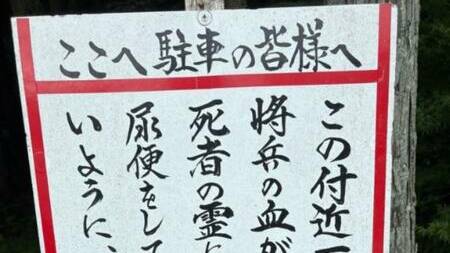 ここへ駐車の皆様へ
この付近一
将兵の血が
死者の霊に
尿便をして
いように、